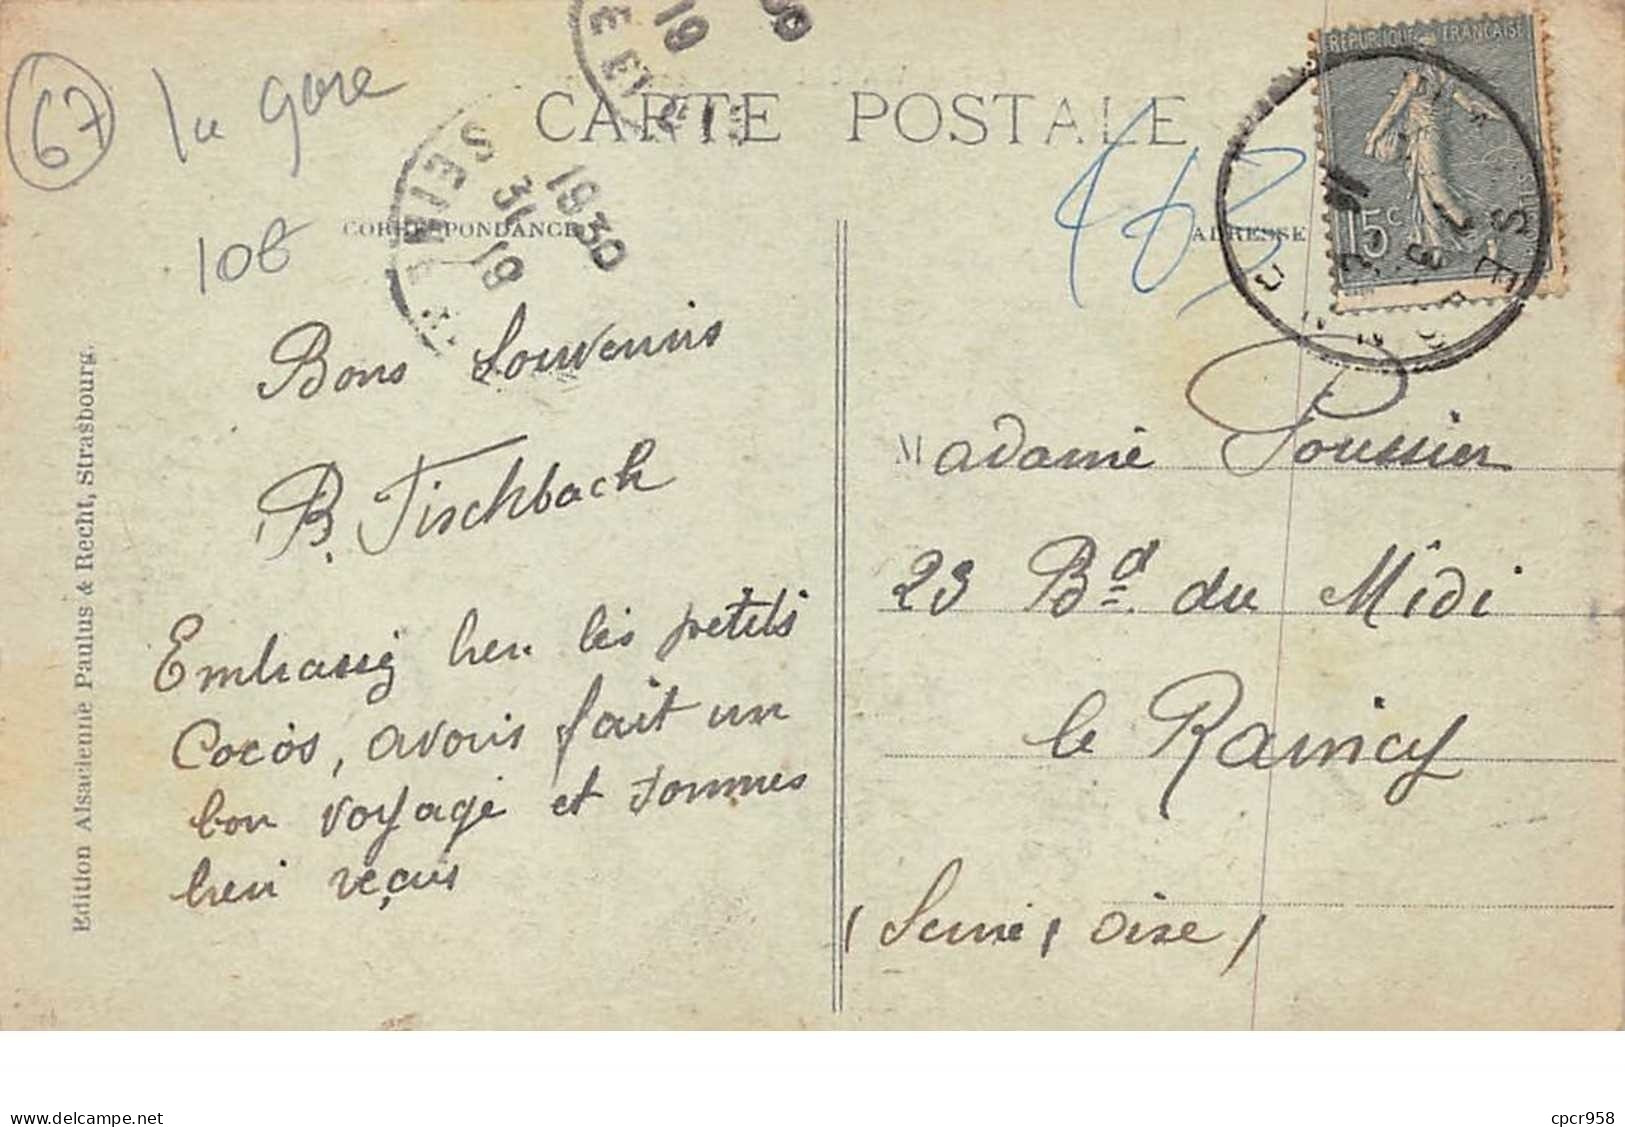 67
la gare
10€
CARTE POSTALE
CORRESPONDANCE
ADRESSE
RÉPUBLIQUE FRANÇAISE
15c
1930
31
19
SEINE
19
Edition Alsacienne Paulus & Recht, Strasbourg.
Bons Souvenirs
B. Fischbach
Embrassez bien les petits
Cocos, avons fait un
bon voyage et sommes
bien reçus
Madame Poussier
23 Bd du Midi
le Raincy
(Seine, Oise)
delcampe.net
cpcr958